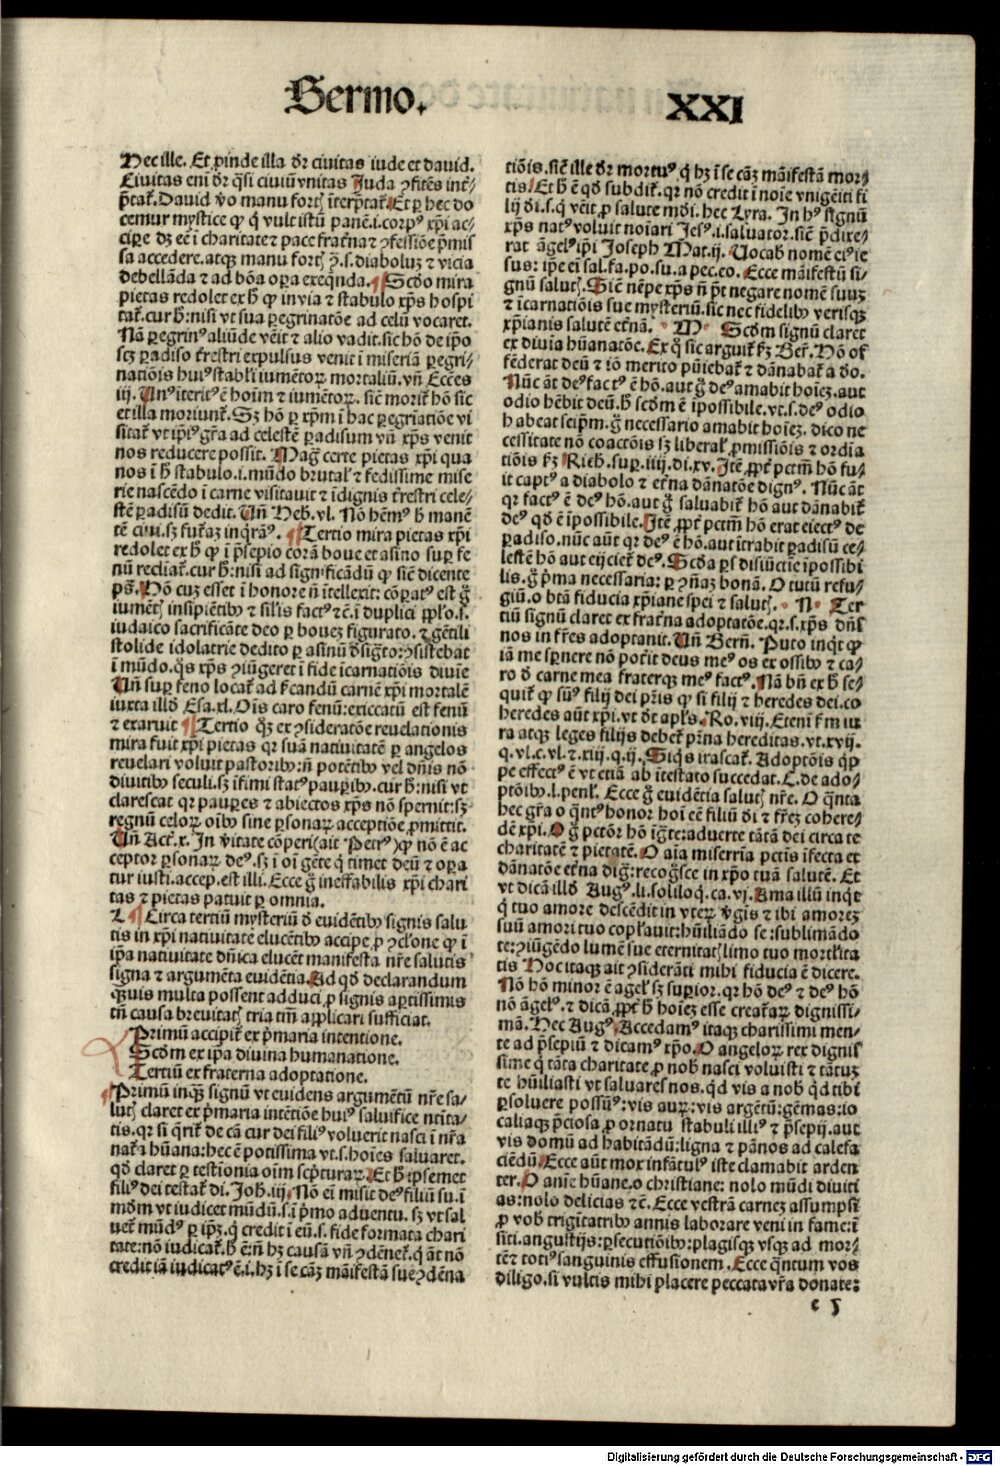 Sermo. XXI
Hec ille. Et ꝓinde illa dr̄ civitas iude et david.
Civitas eni dr̄ q̄si civiū vnitas Juda ꝯfitēs int̄ꝑ/
p̄tat̄. David v̄o manu fort īterp̄tat̄. Et ꝑ hec do
cemur mystice ꝙ q vult istū panē .i. corpꝰ xp̄i ac/
cipe dꝫ eē ī charitate ⁊ pace frat̄na ⁊ ꝯfessiōe p̄mis
sa accedere. atqꝫ manu fort p̄.s. diabolus ⁊ vicia
debellāda ⁊ ad bōa oꝑa exeqnda. Scdo mira
pietas redolet ex h ꝙ in via ⁊ stabulo xp̄s hospi
tat̄. cur h: nisi vt sua ꝑegrinatōe ad celū vocaret.
Nā ꝑegrinꝰ aliūde vēit ⁊ alio vadit. sic hō de ip̄o
scꝫ ꝑadiso t̄restri expulsus venit ī miseriā ꝑegri/
natiōis huiꝰ stabli iumētoꝝ mortaliū. vn̄ Ecc̄es
iij. Vnꝰ īteritꝰ ē hoim ⁊ iumētoꝝ. sic morit̄ hō sic
et illa moriunt̄. Sꝫ hō ꝑ xp̄m ī hac ꝑegriatiōe vi
sitat̄ vt ip̄iꝰ gr̄a ad celestē ꝑadisum vn̄ xp̄s venit
nos reducere possit. Maḡ certe pietas xp̄i qua
nos ī h stabulo .i. mūdo brutal ⁊ fedissime mise
rie nascēdo ī carne visitavit ⁊ īdignis t̄restri cele/
stē ꝑadisū dedit. Vn̄ Heb. vl. Nō hēmꝰ h manē
tē civi. sꝫ futaꝫ inq̄rāꝰ. Tertio mira pietas xp̄i
redolet ex h ꝙ ī p̄sepio corā bove et asino suꝑ fe
nū recliat̄. cur h: nisi ad significādū ꝙ sic dicente
ps̄. Hō cuꝫ esset ī honore n̄ ītellexit: cōꝑatꝰ est g
iumēt insipiētibꝰ ⁊ silis factꝰ ⁊c̄. ī duplici ꝓplo .s.
iudaico sacrificāte deo ꝑ boveꝫ figurato. ⁊ gētili
stolide idolatrie dedito ꝑ asinū dsigto: ꝯsistebat
ī mūdo. q̄s xp̄s ꝯiūgeret ī fide īcarnatiōis diuīe
Vn̄ suꝑ feno locat̄ ad fcandū carnē xp̄i mortalē
iuxta illd Esa. xl. Ois caro fenū: exiccatū est fenū
⁊ exaruit Tertio q̄ꝫ ex ꝯsideratōe revelationis
mira fuit xp̄i pietas qr suā nativitatē ꝑ angelos
revelari voluit pastoribꝰ: n̄ potētibꝰ vel dn̄is nō
divitibꝰ seculi. sꝫ īfimi statꝰ pauꝑibꝰ. cur h: nisi vt
clarescat qr pauꝑes ⁊ abiectos xp̄s nō spernit: sꝫ
regnū celoꝝ oībꝰ sine ꝑsonaꝝ acceptiōe ꝓmittit.
Vn̄ Act̄. x. In v̄itate cōꝑi (ait Petrꝰ) ꝙ nō ē ac
ceptor ꝑsonaꝝ deꝰ. sꝫ ī oī gēte q timet deū ⁊ oꝑa
tur iusti. accep. est illi. Ecce g ineffabilis xp̄i chari
tas ⁊ pietas patuit ꝑ omnia.
L Circa tertiū mysteriū d evidētibꝰ signis salu
tis in xp̄i nativitate elucētibꝰ accipe ꝓ ꝯclone ꝙ ī
ip̄a nativitate dn̄ica elucēt manifesta nr̄e salutis
signa ⁊ argumēta evidētia. Ad qd declarandum
q̄vis multa possent adduci ꝓ signis aꝑtissimis
tn̄ causa brevitat tria tm̄ applicari sufficiat.
Primū accipit̄ ex p̄maria intentione.
Scdm ex ip̄a divina humanatione.
Tertiū ex fraterna adoptatione.
Primū inqꝫ signū vt evidens argumētū nr̄e sa/
lut claret ex p̄maria intētiōe huiꝰ saluifice nt̄ita/
tis. qr si q̄rit̄ de cā cur dei filiꝰ voluerit nasci ī nr̄a
nat̄a hūana: hec ē potissima vt .s. hoīes salvaret.
qd claret ꝑ testīonia oīm scp̄turaꝝ. Et h ip̄semet
filiꝰ dei testat̄ di. Joh. iij. Nō eī misit deꝰ filiū su. ī
mdm vt iudicet mūdū .s. ī p̄mo adventu. sꝫ vt sal
uet̄ mūdꝰ ꝑ ip̄ꝫ. q credit ī eū .s. fide formata chari
tate: nō iudicat̄. h ē: n̄ hꝫ causā vn̄ ꝯdēnet̄. q āt nō
credit iā iudicatꝰ ē .i. hꝫ ī se cāꝫ māifestā sue ꝯdēna
tiōis. sic ille dr̄ mortuꝰ q hꝫ ī se cāꝫ māifestā mor/
tis. Et h ē qd subdit̄. qr nō credit ī noīe vnigēiti fi
lij di .s. q vēit ꝓ salute mdi. hec Lyra. In hꝰ signū
xp̄s natꝰ voluit noīari Jesꝰ .i. salvator. sic p̄dixe/
rat āgelꝰ ip̄i Joseph Mat. ij. Vocab nomē eiꝰ ie
sus: ipe ei sal. fa. po. su. a pec. eo. Ecce māifestū si/
gnū salut. Sic nēpe xp̄s n̄ p̄t negare nomē suuꝫ
⁊ īcarnatiōis sue mysteriū. sic nec fidelibꝰ verisqꝫ
xp̄ianis salutē et̄nā. M Scdm signū claret
ex divīa hūanatōe. Ex q sic arguit̄ fꝫ Ber. Hō of
fēderat deū ⁊ iō merito pūiebat̄ ⁊ dānabat̄ a do.
Nūc āt deꝰ factꝰ ē hō. aut g deꝰ amabit hoīeꝫ. aut
odio hēbit deū. h scdm ē īpossibile. vt .s. deꝰ odio
habeat seip̄m. g necessario amabit hoīeꝫ. dico ne
cessitate nō coactōis sꝫ liberal ꝓmissiōis ⁊ ordīa
tiōis fꝫ Rich. suꝑ. iiij. di. xv. Jtē ꝓpt̄ pctm̄ hō fu/
it captꝰ a diabolo ⁊ et̄na dānatōe dignꝰ. Nūc āt
qr factꝰ ē deꝰ hō. aut g salvabit̄ hō aut dānabit̄
deꝰ qd ē īpossibile. Jtē ꝓpt̄ pctm̄ hō erat eiectꝰ de
ꝑadiso. nūc aūt qr deꝰ ē hō. aut ītrabit ꝑadisū ce/
lestē hō aut eijciet̄ deꝰ. Scda ꝑs disiūctīe īpossibi
lis. g p̄ma necessaria: ꝑ ꝯn̄aꝫ bonā. O tutū refu/
giū. o btā fiducia xp̄iane spei ⁊ salut. N Ter
tiū signū claret ex frat̄na adoptatōe. qr .s. xp̄s dn̄s
nos in fr̄es adoptavit. Vn̄ Bern̄. Puto inqt ꝙ
iā me spernere nō pot̄it deus meꝰ os ex ossibꝰ ⁊ ca/
ro d carne mea fraterqꝫ meꝰ factꝰ. Nā bn̄ ex h se/
quit̄ ꝙ sumꝰ filij dei pr̄is ꝙ si filij ⁊ heredes dei. co
heredes aūt xp̄i. vt dt apl̄s. Ro. viij. Etenī fm iu
ra atqꝫ leges filijs debet̄ p̄rna hereditas. vt. xvij.
q. vl. c. vl. ⁊. xiij. q. ij. Siqs irascat̄. Adoptōis q̄ꝓ
pe effectꝰ ē vt etiā ab ītestato succedat. C. de ado/
ptōibꝰ. l. penl. Ecce g evidētia salut nr̄e. O q̄nta
hec gr̄a o q̄ntꝰ honor hoī eē filiū di ⁊ fr̄eꝫ cohere/
dē xp̄i. O g pctōr hō īgte: adverte tātā dei circa te
charitatē ⁊ pietatē. O aīa miserrīa pctīs īfecta et
dānatōe et̄na dig: recogsce in xp̄o tuā salutē. Et
vt dicā illd Augꝰ. li. soliloq. ca. vj. Ama illū inqt
q tuo amore descēdit in vteꝝ v̄gīs ⁊ ibi amoreꝫ
suū amori tuo coplavit: hūiliādo se: sublimādo
te: ꝯiūgēdo lumē sue eternitat limo tuo mortlita
tis Hoc itaqꝫ ait ꝯsiderāti mihi fiducia ē dicere.
Nō hō minor ē agel sꝫ suꝑior. qr hō deꝰ ⁊ deꝰ hō
nō āgelꝰ. ⁊ dicā ꝓpt̄ h hoīes esse creat̄aꝝ dignissi/
mā. Hec Augꝰ. Accedamꝰ itaqꝫ charissimi men/
te ad p̄sepiū ⁊ dicamꝰ xp̄o. O angeloꝝ rex dignis
sime q tāta charitate ꝓ nob nasci voluisti ⁊ tātuꝫ
te hūiliasti vt salvares nos. qd vis a nob qd tibi
ꝑsoluere possūꝰ: vis auꝝ: vis argētū: gēmas: io
caliaqꝫ p̄ciosa ꝓ ornatu stabuli illiꝰ ⁊ p̄sepij. aut
vis domū ad habitādū: ligna ⁊ pānos ad calefa
ciēdū. Ecce aūt mox infātulꝰ iste clamabit arden
ter. O anīe hūane. o christiane: nolo mūdi diviti
as: nolo delicias ⁊c̄. Ecce vestrā carneꝫ assumpsi
ꝓ vob trigītatribꝰ annis laborare veni in fame: ī
siti. angustijs: ꝑsecutiōibꝰ: plagisqꝫ vsqꝫ ad mor/
tē ⁊ totiꝰ sanguinis effusionem. Ecce q̄ntum vos
diligo. si vultis mihi placere peccata vr̄a donate:
c 5
Digitalisierung gefördert durch die Deutsche Forschungsgemeinschaft - DFG